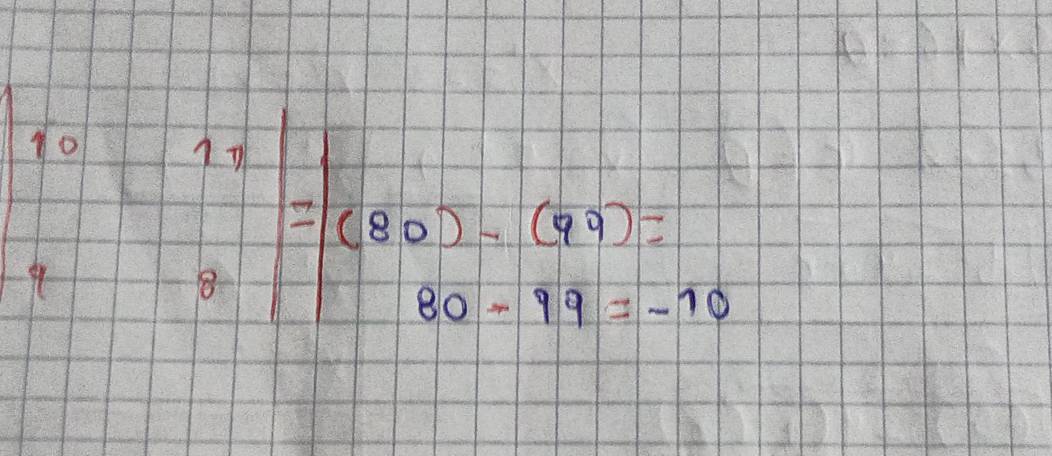 | 10 11 | = | (80) - (99) =
| 9 8 | | 80 - 99 = -10